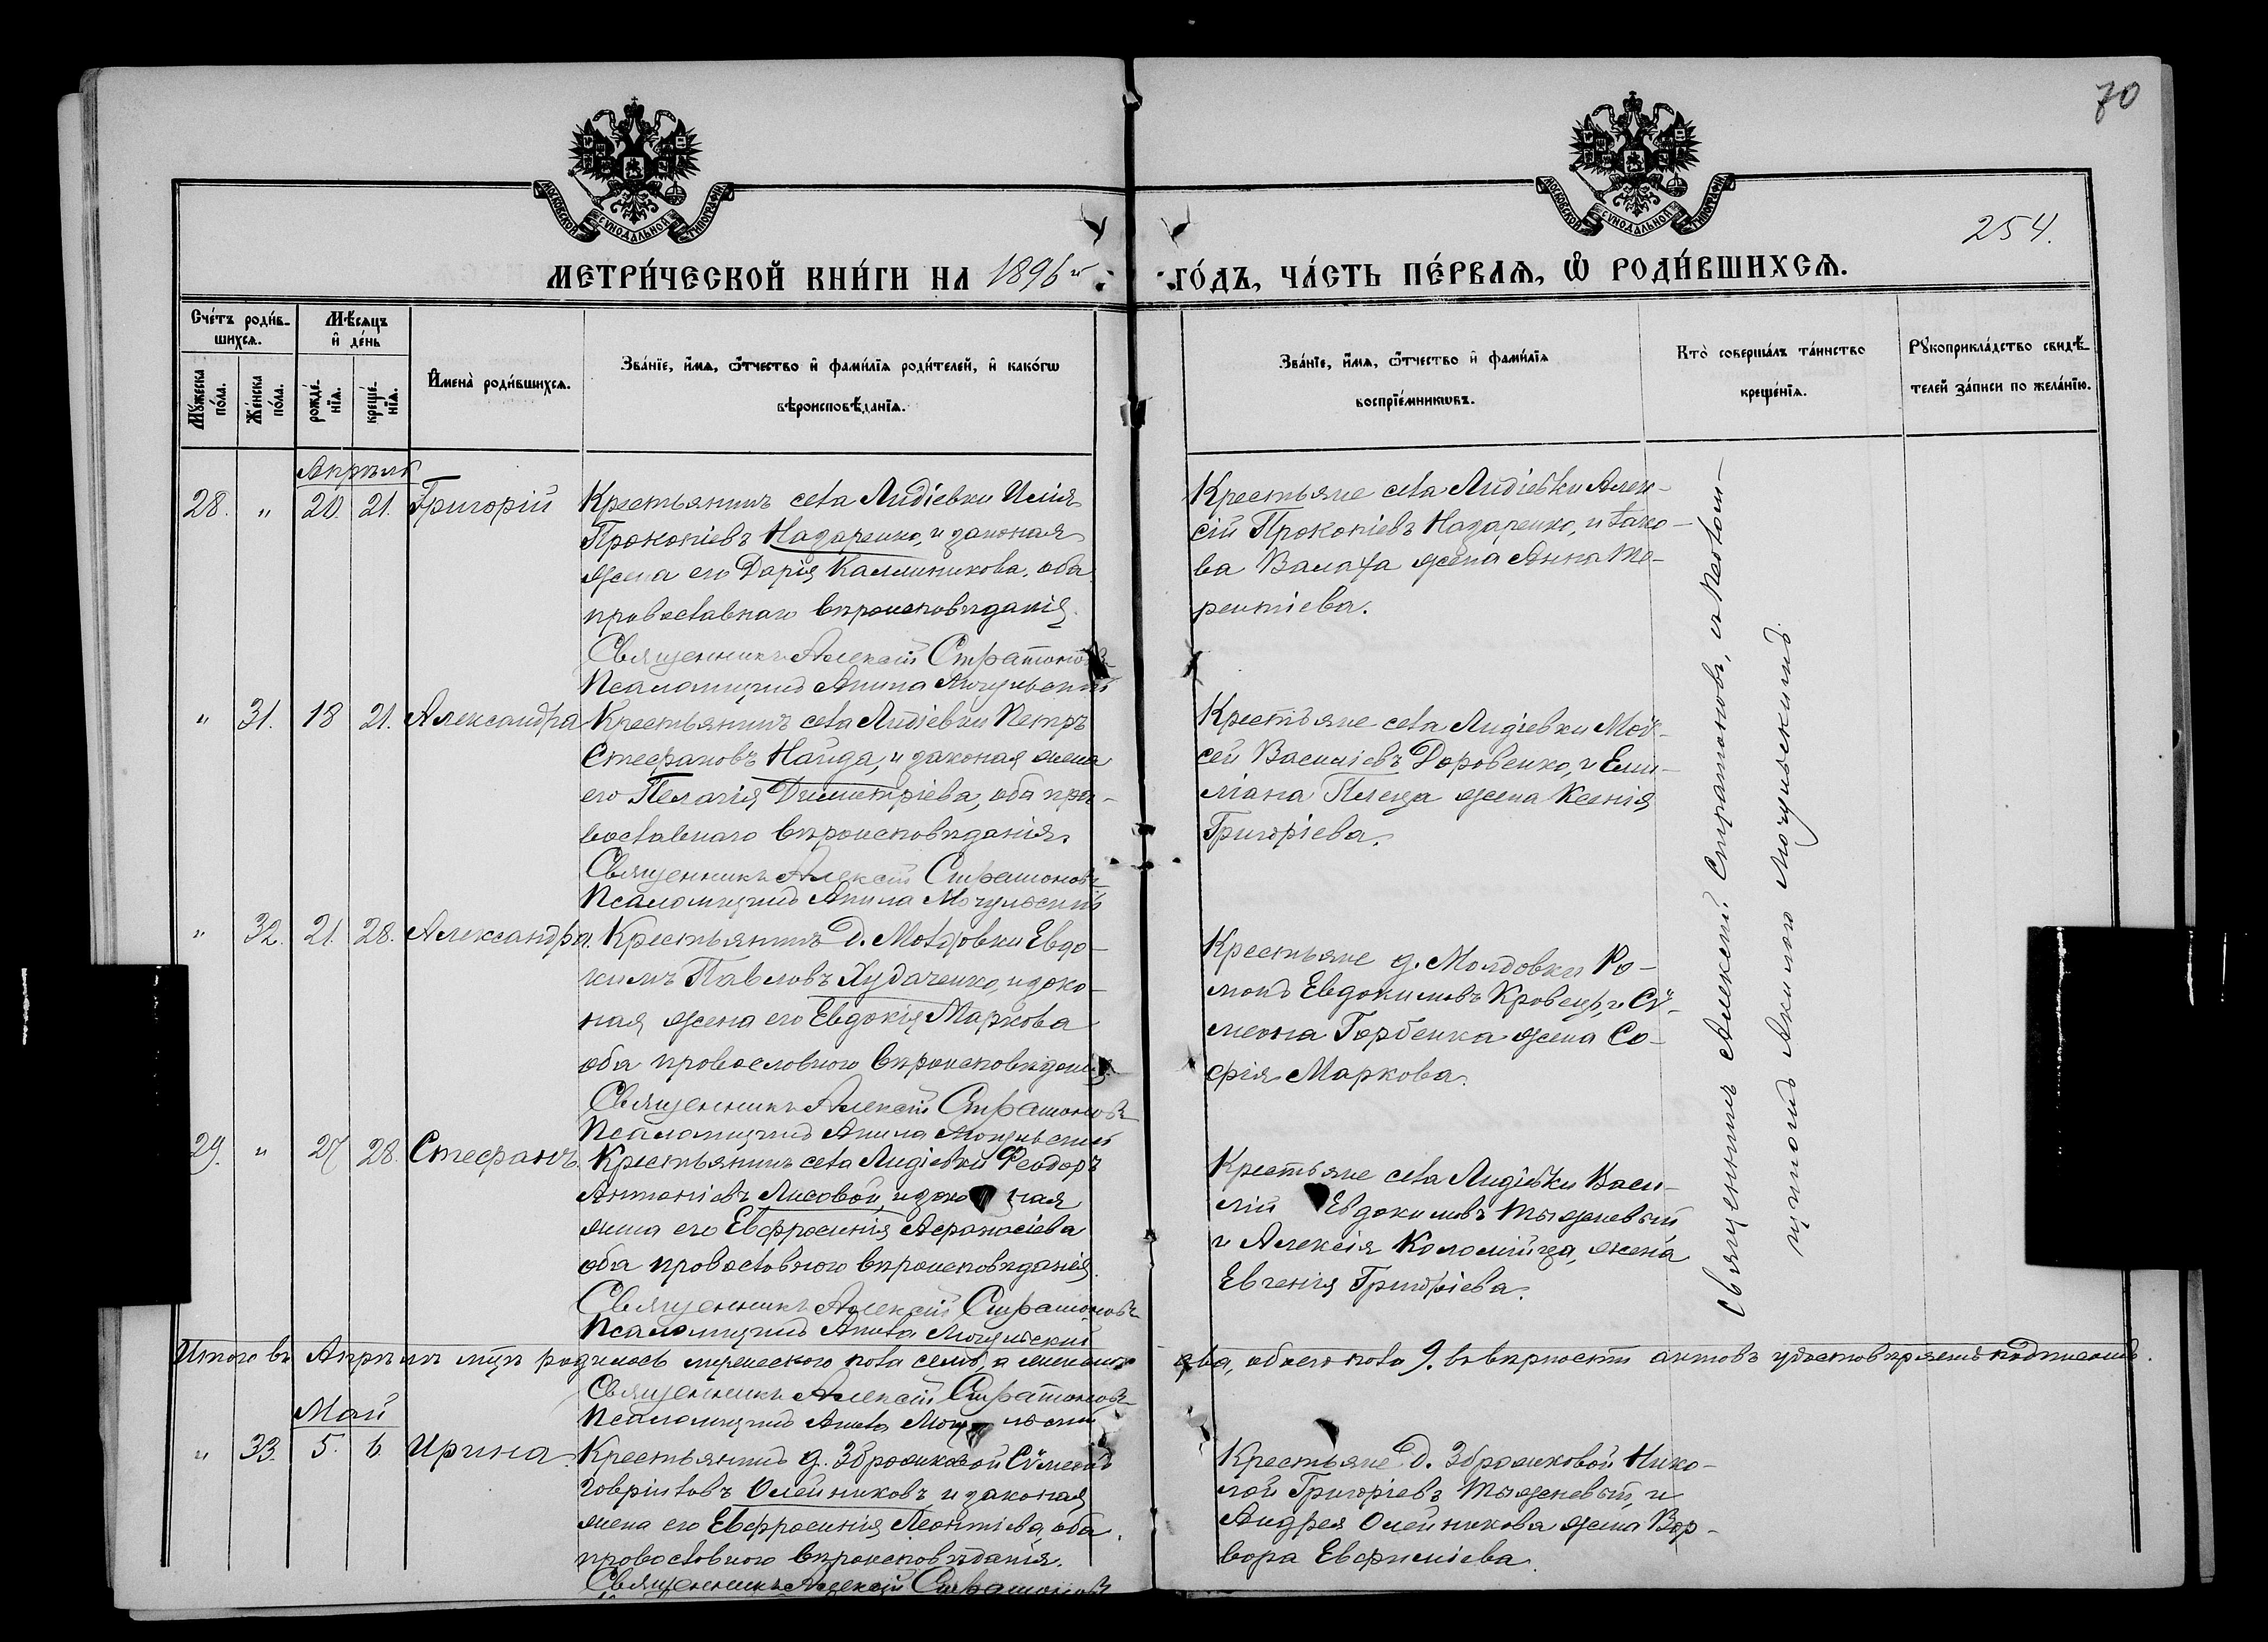 70
МОСКОВСКОЙ СѴНОДАЛЬНОЙ ТИПОГРАФІИ
МОСКОВСКОЙ СѴНОДАЛЬНОЙ ТИПОГРАФІИ
254.
МЕТРИ́ЧЕСКОЙ КНИ́ГИ НА 1896й
ГО́ДЪ, ЧА́СТЬ ПЕ́РВАѦ, Ѡ РОДИ́ВШИХСѦ.
Сче́тъ роди́в-
шихсѧ.
Мꙋ́жеска по́ла.
Же́нска по́ла.
Мѣ́сѧцъ
и҆ де́нь
рожде́-
нїѧ.
креще́-
нїѧ.
И҆мена̀ роди́вшихсѧ.
Зва́нїе, и҆́мѧ, ѻ҆́тчество и҆ фами́лїѧ роди́телей, и҆ како́гѡ
вѣроисповѣ́данїѧ.
Зва́нїе, и҆́мѧ, ѻ҆́тчество и҆ фами́лїѧ
воспрїе́мникѡвъ.
Кто̀ соверша́лъ та́инство
креще́нїѧ.
Рꙋкоприкла́дство свидѣ́-
телей за́писи по жела́нїю.
Апрѣль
28. " 20. 21. Григорій
Крестьянинъ села Лидіевки Илія
Прокопіевъ Назаренко, и законая
жена его Дарія Каллиникова, оба
православнаго вѣроисповѣданія.
Священникъ Алексій Стратоновъ
Псаломщикъ Акила Могульскій
Крестьяне села Лидіевки Алек-
сій Прокопіевъ Назаренко, и Іако-
ва Валаха жена Анна Те-
рентіева.
" 31. 18 21. Александра
Крестьянинъ села Лидіевки Петръ
Стефановъ Найда, и законая жена
его Пелагія Димитріева, оба пра-
вославнаго вѣроисповѣданія.
Священникъ Алексій Стратоновъ
Псаломщикъ Акила Могульскій
Крестьяне села Лидіевки Мой-
сей Василіевъ Доровенко, и Еми-
ліана Плеца жена Ксенія
Григоріева.
" 32. 21. 28. Александра.
Крестьянинъ д. Молдовки Евдо-
кимъ Павловъ Худаченко, и зако-
ная жена его Евдокія Маркова
оба православного вѣроисповѣданія.
Священникъ Алексій Стратоновъ
Псаломщикъ Акила Могульскій
Крестьяне д. Молдовки Ро-
манъ Евдокимовъ Кравецъ, и Сѵ-
меона Горбенка жена Со-
фія Маркова.
29. " 27 28. Стефанъ.
Крестьянинъ села Лидіевки Феодоръ
Антоніевъ Лисовой, и законая
жена его Евфросинія Афонасіева
оба православного вѣроисповѣданія.
Священникъ Алексій Стратоновъ
Псаломщикъ Акила Могульскій
Крестьяне села Лидіевки Васи-
лій Евдокимовъ Тыжневый
и Алексія Коломійца, жена
Евгенія Григоріева.
Священникъ Алексій Стратоновъ, съ псалом-
щикомъ Акилою Могульскимъ.
Итого въ Апрѣлѣ мцѣ родилось мужеского пола семь, а женского
два, обоего пола 9. въ вѣрности актовъ удостовѣряемъ подписомъ.
Священникъ Алексій Стратоновъ
Псаломщикъ Акила Могульскій
Май
" 33. 5. 6 Ирина.
Крестьянинъ д. Збрашковой Сѵмеонъ
Говріиловъ Олейниковъ и законая
жена его Евфросинія Леонтіева, оба
православного вѣроисповѣданія.
Священникъ Алексій Стратоновъ
Крестьяне д. Збрашковой Нико-
лай Григоріевъ Тыжневый, и
Андрея Олейникова жена Вар-
вора Евфиміева.